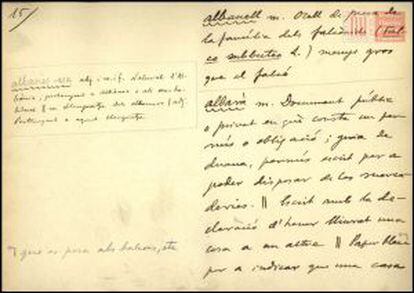 15/
albanès -esa adj. i m. i f. Natural d'Al-
bània; pertanyent a Albània o als seus ha-
bitants || m Llengua dels albanesos || adj.
Pertanyent a aquest
albanell m. Ocell de presa de
la família dels falcònids (Fal-
co subbuteo L.) menys gros
que el falcó
albarà m. Document públic
o privat en què consta un per-
mís o obligació; guia de
duana, permís escrit per a
poder disposar de les merca-
deries. || Escrit amb la de-
claració d'haver lliurat una
cosa a un altre || Paper blanc
per a indicar que una casa
que es posa als balcons, etc